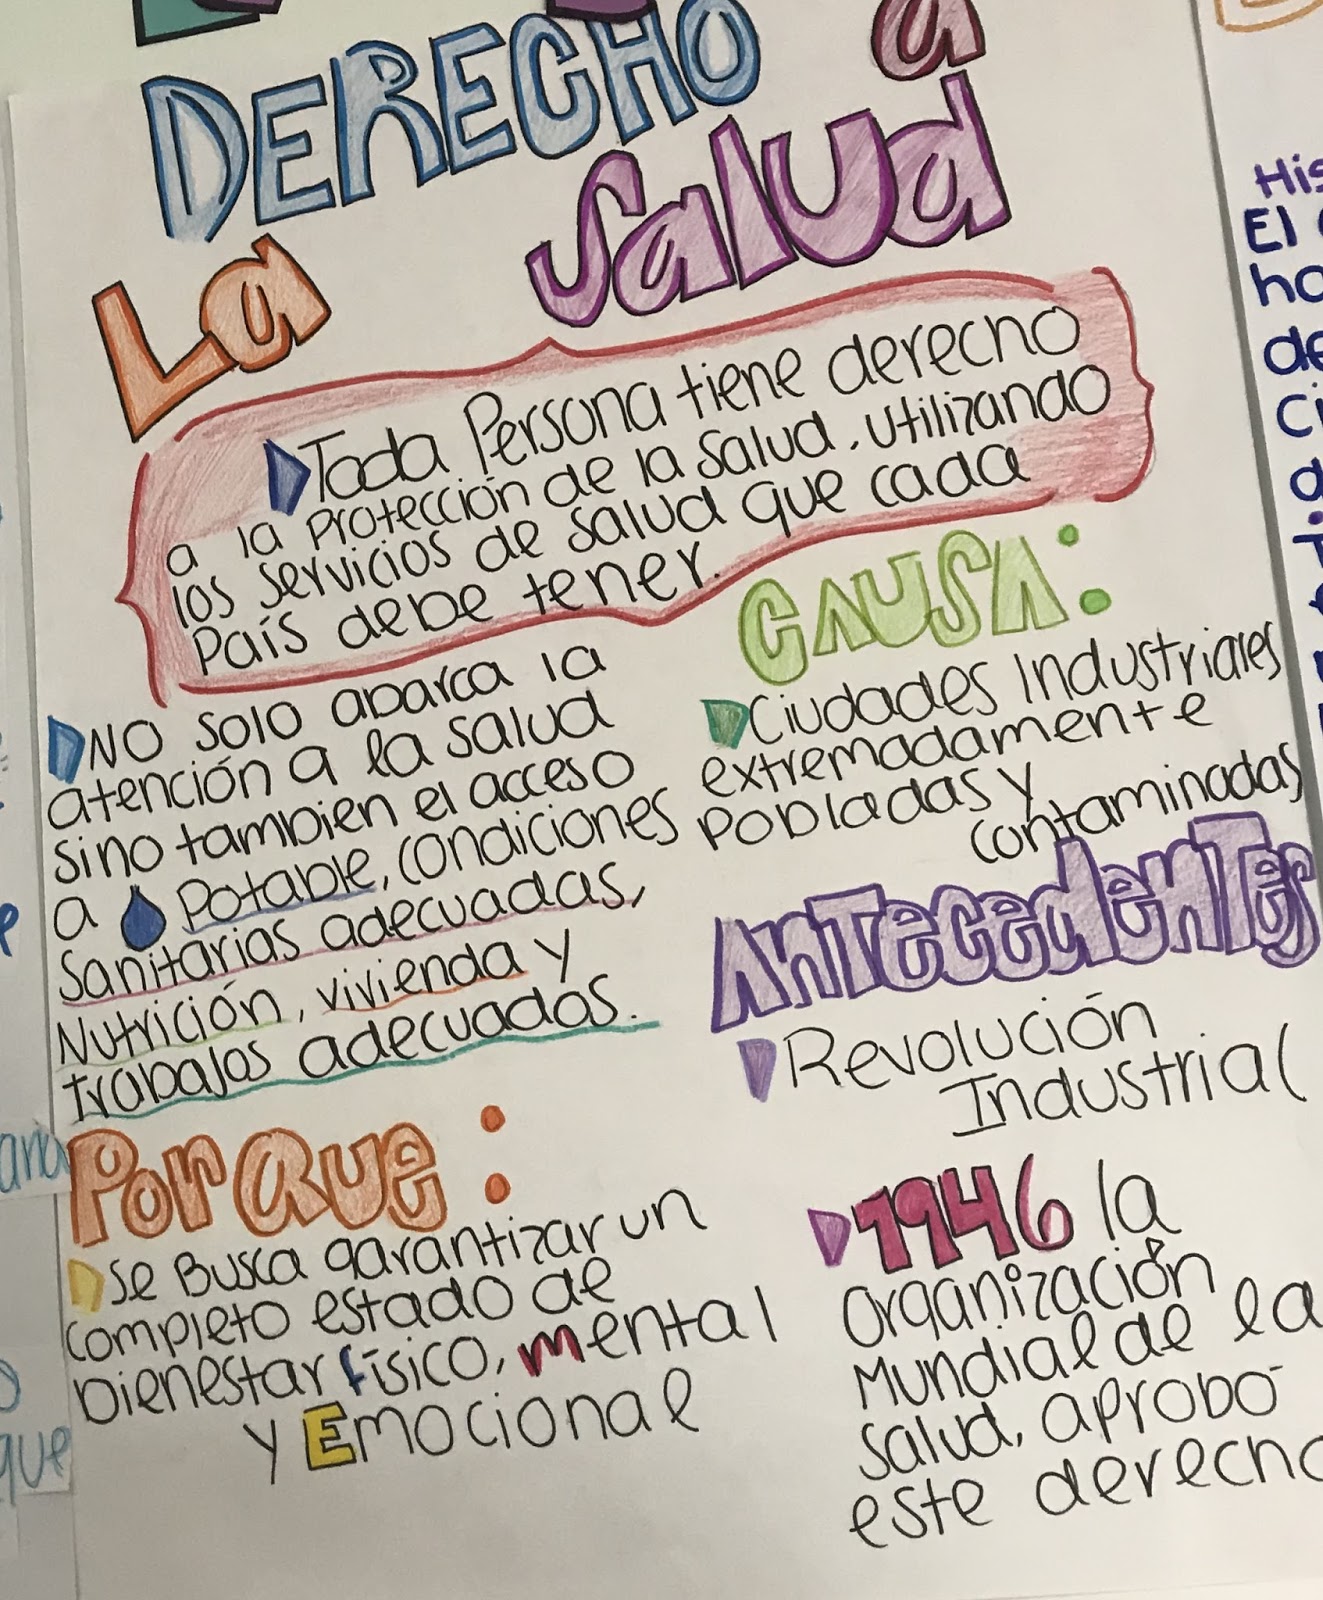 DERECHO a
La Salud
Toda Persona tiene derecho
a la Protección de la salud, utilizando
los servicios de salud que cada
País debe tener.
No solo abarca la
atención a la salud
sino tambien el acceso
a Potable, condiciones
Sanitarias adecuadas,
Nutrición, vivienda y
trabajos adecuados.
Por Que:
Se Busca garantizar un
completo estado de
bienestar físico, mental
y Emocional
CAUSA:
Ciudades Industriales
extremadamente
Pobladas y
contaminadas
Antecedentes
Revolución
Industrial
1946 la
Organización
Mundial de la
Salud, aprobó
este derecho
His
El
ho
de
Ci
que